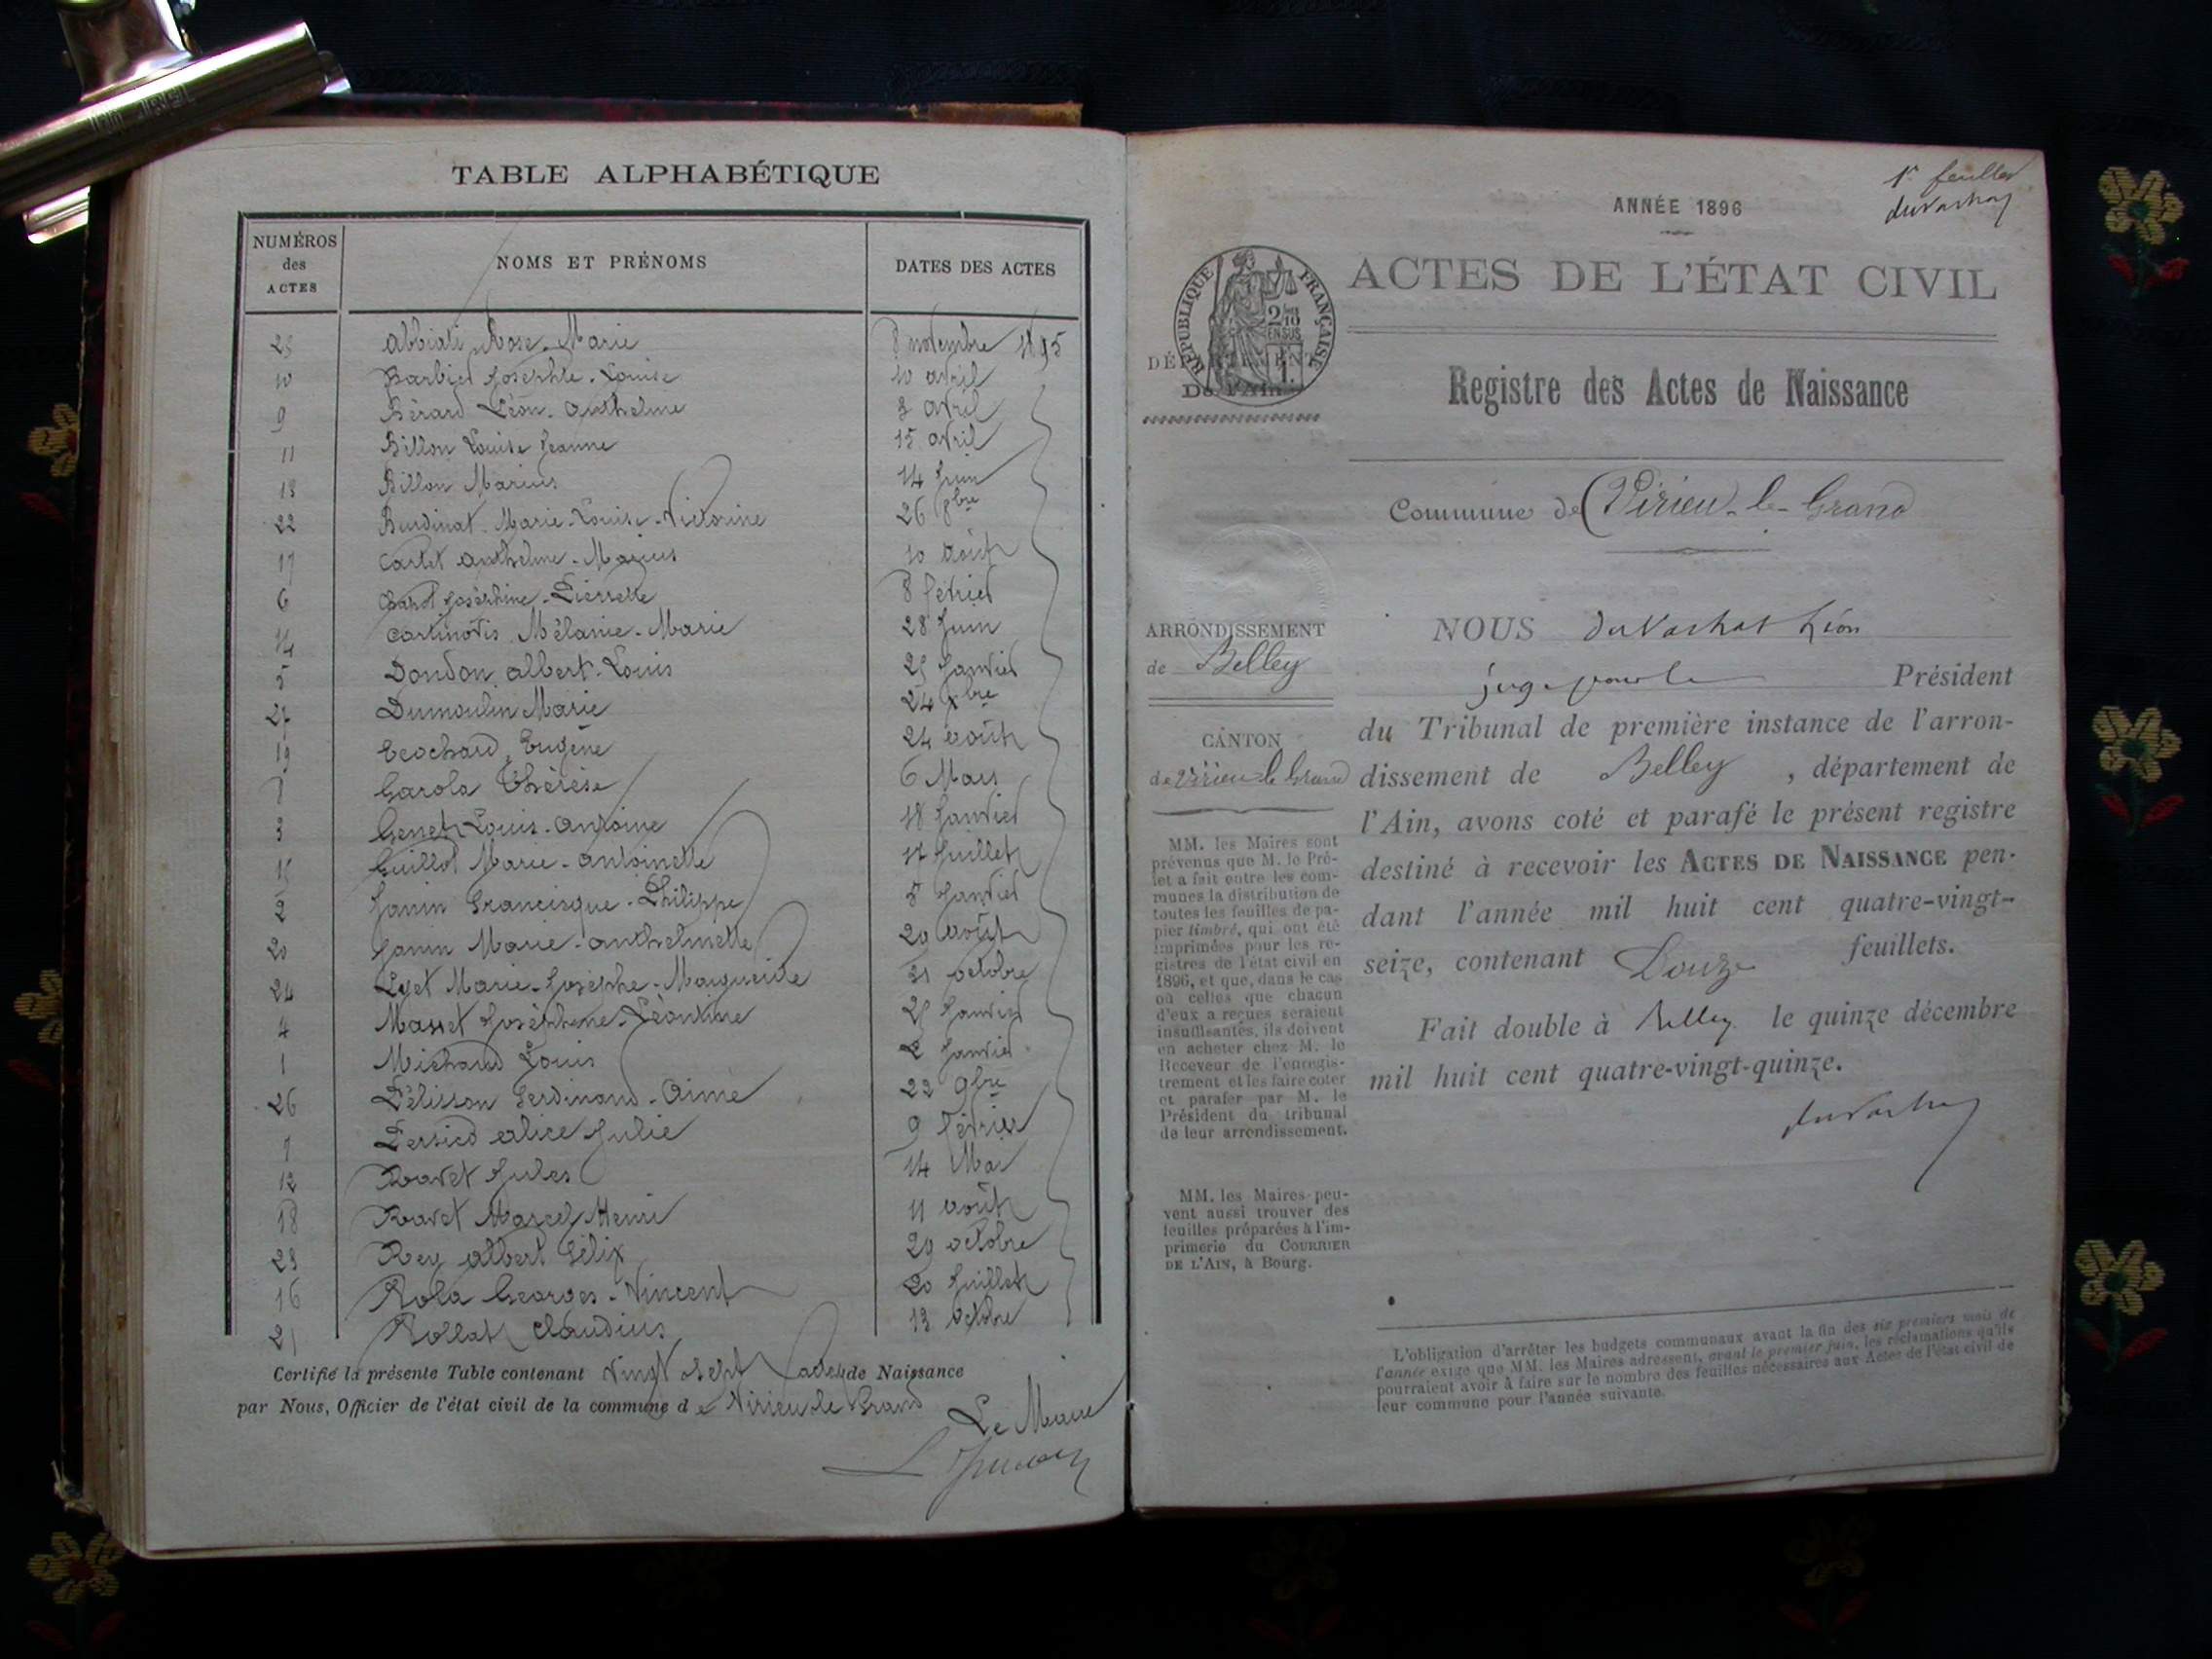 TABLE ALPHABÉTIQUE
NUMÉROS des ACTES
NOMS ET PRÉNOMS
DATES DES ACTES
25 Abbiati Rose-Marie 8 novembre 1895
10 Barbier Josephte-Louise 10 avril
9 Bérard Léon-Anthelme 8 avril
11 Billon Louise Jeanne 15 avril
13 Billon Marius 14 Juin
22 Burdinat Marie-Louise-Victorine 26 8bre
17 Cartet Anthelme-Marius 10 Août
6 Joséphine-Pierrette 8 février
14 Mélanie-Marie 28 Juin
5 Dondon Albert-Louis 25 Janvier
27 Dumoulin Marie 24 xbre
19 Eugène 24 août
8 Garola Thérèse 6 Mars
3 Genet Louis-Antoine 18 Janvier
15 Guillot Marie-Antoinette 17 Juillet
2 Janin Francisque-Philippe 8 Janvier
20 Janin Marie-Anthelmette 29 août
24 Lyet Marie-Josephe-Marguerite 31 octobre
4 Masset Joséphine-Léontine 25 Janvier
1 Michaud Louis 2 Janvier
26 Pélisson Ferdinand-Aimé 22 9bre
7 Persied Alice Julie 9 février
12 Ravet Jules 14 Mai
18 Ravet Marcel Henri 11 août
23 Rey Albert Félix 29 octobre
16 Rola Georges-Vincent 20 Juillet
21 Rollat Claudius 13 octobre
Certifié la présente Table contenant Vingt sept actes de Naissance
par Nous, Officier de l'état civil de la commune de Virieu-le-Grand
Le Maire
1er feuillet
duvachat
ANNÉE 1896
ACTES DE L'ÉTAT CIVIL
RÉPUBLIQUE FRANÇAISE
2/10 EN SUS
DÉPARTEMENT
De l'Ain
Registre des Actes de Naissance
Commune de Virieu-le-Grand
ARRONDISSEMENT
de Belley
CANTON
de Virieu-le-Grand
MM. les Maires sont
prévenus que M. le Pré-
fet a fait entre les com-
munes la distribution de
toutes les feuilles de pa-
pier timbré, qui ont été
imprimées pour les re-
gistres de l'état civil en
1896, et que, dans le cas
où celles que chacun
d'eux a reçues seraient
insuffisantes, ils doivent
en acheter chez M. le
Receveur de l'enregis-
trement et les faire coter
et parafer par M. le
Président du tribunal
de leur arrondissement.
MM. les Maires peu-
vent aussi trouver des
feuilles préparées à l'im-
primerie du COURRIER
DE L'AIN, à Bourg.
NOUS duvachat Léon
juge pour le Président
du Tribunal de première instance de l'arron-
dissement de Belley, département de
l'Ain, avons coté et parafé le présent registre
destiné à recevoir les ACTES DE NAISSANCE pen-
dant l'année mil huit cent quatre-vingt-
seize, contenant Douze feuillets.
Fait double à Belley le quinze décembre
mil huit cent quatre-vingt-quinze.
duvachat
L'obligation d'arrêter les budgets communaux avant la fin des six premiers mois de
l'année exige que MM. les Maires adressent, avant le premier juin, les réclamations qu'ils
pourraient avoir à faire sur le nombre des feuilles nécessaires aux Actes de l'état civil de
leur commune pour l'année suivante.